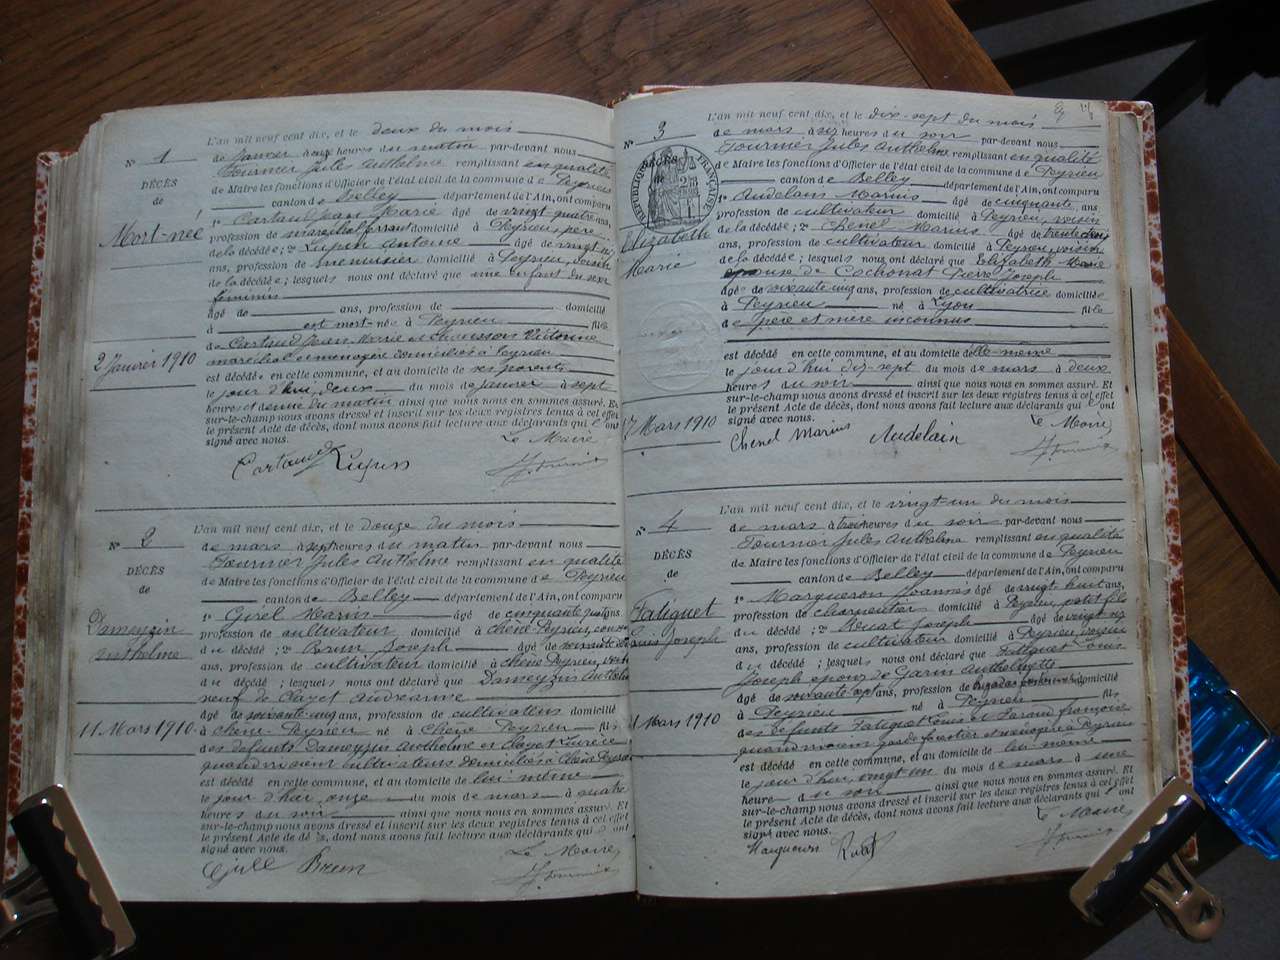 N° 1
DÉCÈS
de
Mort-né
2 Janvier 1910
L'an mil neuf cent dix, et le deux du mois
de Janvier à onze heures du matin par-devant nous
Tournier Jules Anthelme remplissant en qualité
de Maire les fonctions d'Officier de l'état civil de la commune de Peyrieu
canton de Belley département de l'Ain, ont comparu
1° Cartaud Jean Marie âgé de vingt quatre ans,
profession de maréchal ferrant domicilié à Peyrieu, père
de la décédée; 2° Lupin Antoine âgé de vingt
ans, profession de menuisier domicilié à Peyrieu, voisin
de la décédée; lesquels nous ont déclaré que une enfant du sexe
féminin
âgé de ans, profession de domicilié
à est mort-née à Peyrieu fille
de Cartaud Jean Marie et Victorine
maréchal et ménagère domiciliés à Peyrieu
est décédée en cette commune, et au domicile de ses parents
le jour d'hui, deux du mois de janvier à sept
heures et demie du matin ainsi que nous nous en sommes assuré. Et
sur-le-champ nous avons dressé et inscrit sur les deux registres tenus à cet effet
le présent Acte de décès, dont nous avons fait lecture aux déclarants qui l'ont
signé avec nous.
Le Maire
Cartaud Lupin
J. Tournier
N° 2
DÉCÈS
de
Dameyzin
Anthelme
11 Mars 1910
L'an mil neuf cent dix, et le douze du mois
de mars à sept heures du matin par-devant nous
Tournier Jules Anthelme remplissant en qualité
de Maire les fonctions d'Officier de l'état civil de la commune de Peyrieu
canton de Belley département de l'Ain, ont comparu
1° Marius âgé de cinquante ans,
profession de cultivateur domicilié à Chêne Peyrieu,
du décédé; 2° Brun Joseph âgé de soixante
ans, profession de cultivateur domicilié à Chêne Peyrieu,
du décédé; lesquels nous ont déclaré que Dameyzin Anthelme
veuf de Clayet
âgé de soixante cinq ans, profession de cultivateur domicilié
à Chêne-Peyrieu né à Chêne Peyrieu fils
des défunts Dameyzin Anthelme et Clayet
quand vivaient cultivateurs domiciliés à Chêne Peyrieu
est décédé en cette commune, et au domicile de lui-même
le jour d'hier onze du mois de mars à quatre
heures du soir ainsi que nous nous en sommes assuré. Et
sur-le-champ nous avons dressé et inscrit sur les deux registres tenus à cet effet
le présent Acte de décès, dont nous avons fait lecture aux déclarants qui ont
signé avec nous.
Le Maire
Brun
J. Tournier
N° 3
DÉCÈS
de
RÉPUBLIQUE FRANÇAISE
Elizabeth
Marie
17 Mars 1910
L'an mil neuf cent dix, et le dix-sept du mois
de mars à six heures du soir par-devant nous
Tournier Jules Anthelme remplissant en qualité
de Maire les fonctions d'Officier de l'état civil de la commune de Peyrieu
canton de Belley département de l'Ain, ont comparu
1° Audelain Marius âgé de cinquante ans,
profession de cultivateur domicilié à Peyrieu, voisin
de la décédée; 2° Chenel Marius âgé de trente
ans, profession de cultivateur domicilié à Peyrieu, voisin
de la décédée; lesquels nous ont déclaré que Elizabeth Marie
épouse de Cochonat Pierre Joseph
âgée de soixante cinq ans, profession de cultivatrice domiciliée
à Peyrieu née à Lyon fille
de père et mère inconnus
est décédée en cette commune, et au domicile d'elle-même
le jour d'hui dix-sept du mois de mars à deux
heures du soir ainsi que nous nous en sommes assuré. Et
sur-le-champ nous avons dressé et inscrit sur les deux registres tenus à cet effet
le présent Acte de décès, dont nous avons fait lecture aux déclarants qui l'ont
signé avec nous.
Le Maire
Chenel Marius Audelain
J. Tournier
N° 4
DÉCÈS
de
Fatiguet
Louis Joseph
21 Mars 1910
L'an mil neuf cent dix, et le vingt-un du mois
de mars à trois heures du soir par-devant nous
Tournier Jules Anthelme remplissant en qualité
de Maire les fonctions d'Officier de l'état civil de la commune de Peyrieu
canton de Belley département de l'Ain, ont comparu
1° Margueron Joannès âgé de vingt huit ans,
profession de charpentier domicilié à Peyrieu, petit fils
du décédé; 2° Ruat Joseph âgé de vingt six
ans, profession de cultivateur domicilié à Peyrieu, voisin
du décédé; lesquels nous ont déclaré que Fatiguet Louis
Joseph époux de Garin Anthelmette
âgé de soixante sept ans, profession de domicilié
à Peyrieu né à Peyrieu fils
des défunts Fatiguet Louis et Françoise
quand vivaient garde forestier et ménagère à Peyrieu
est décédé en cette commune, et au domicile de lui même
le jour d'hui, vingt un du mois de mars à une
heure du soir ainsi que nous nous en sommes assuré. Et
sur-le-champ nous avons dressé et inscrit sur les deux registres tenus à cet effet
le présent Acte de décès, dont nous avons fait lecture aux déclarants qui l'ont
signé avec nous.
Le Maire
Margueron Ruat
J. Tournier